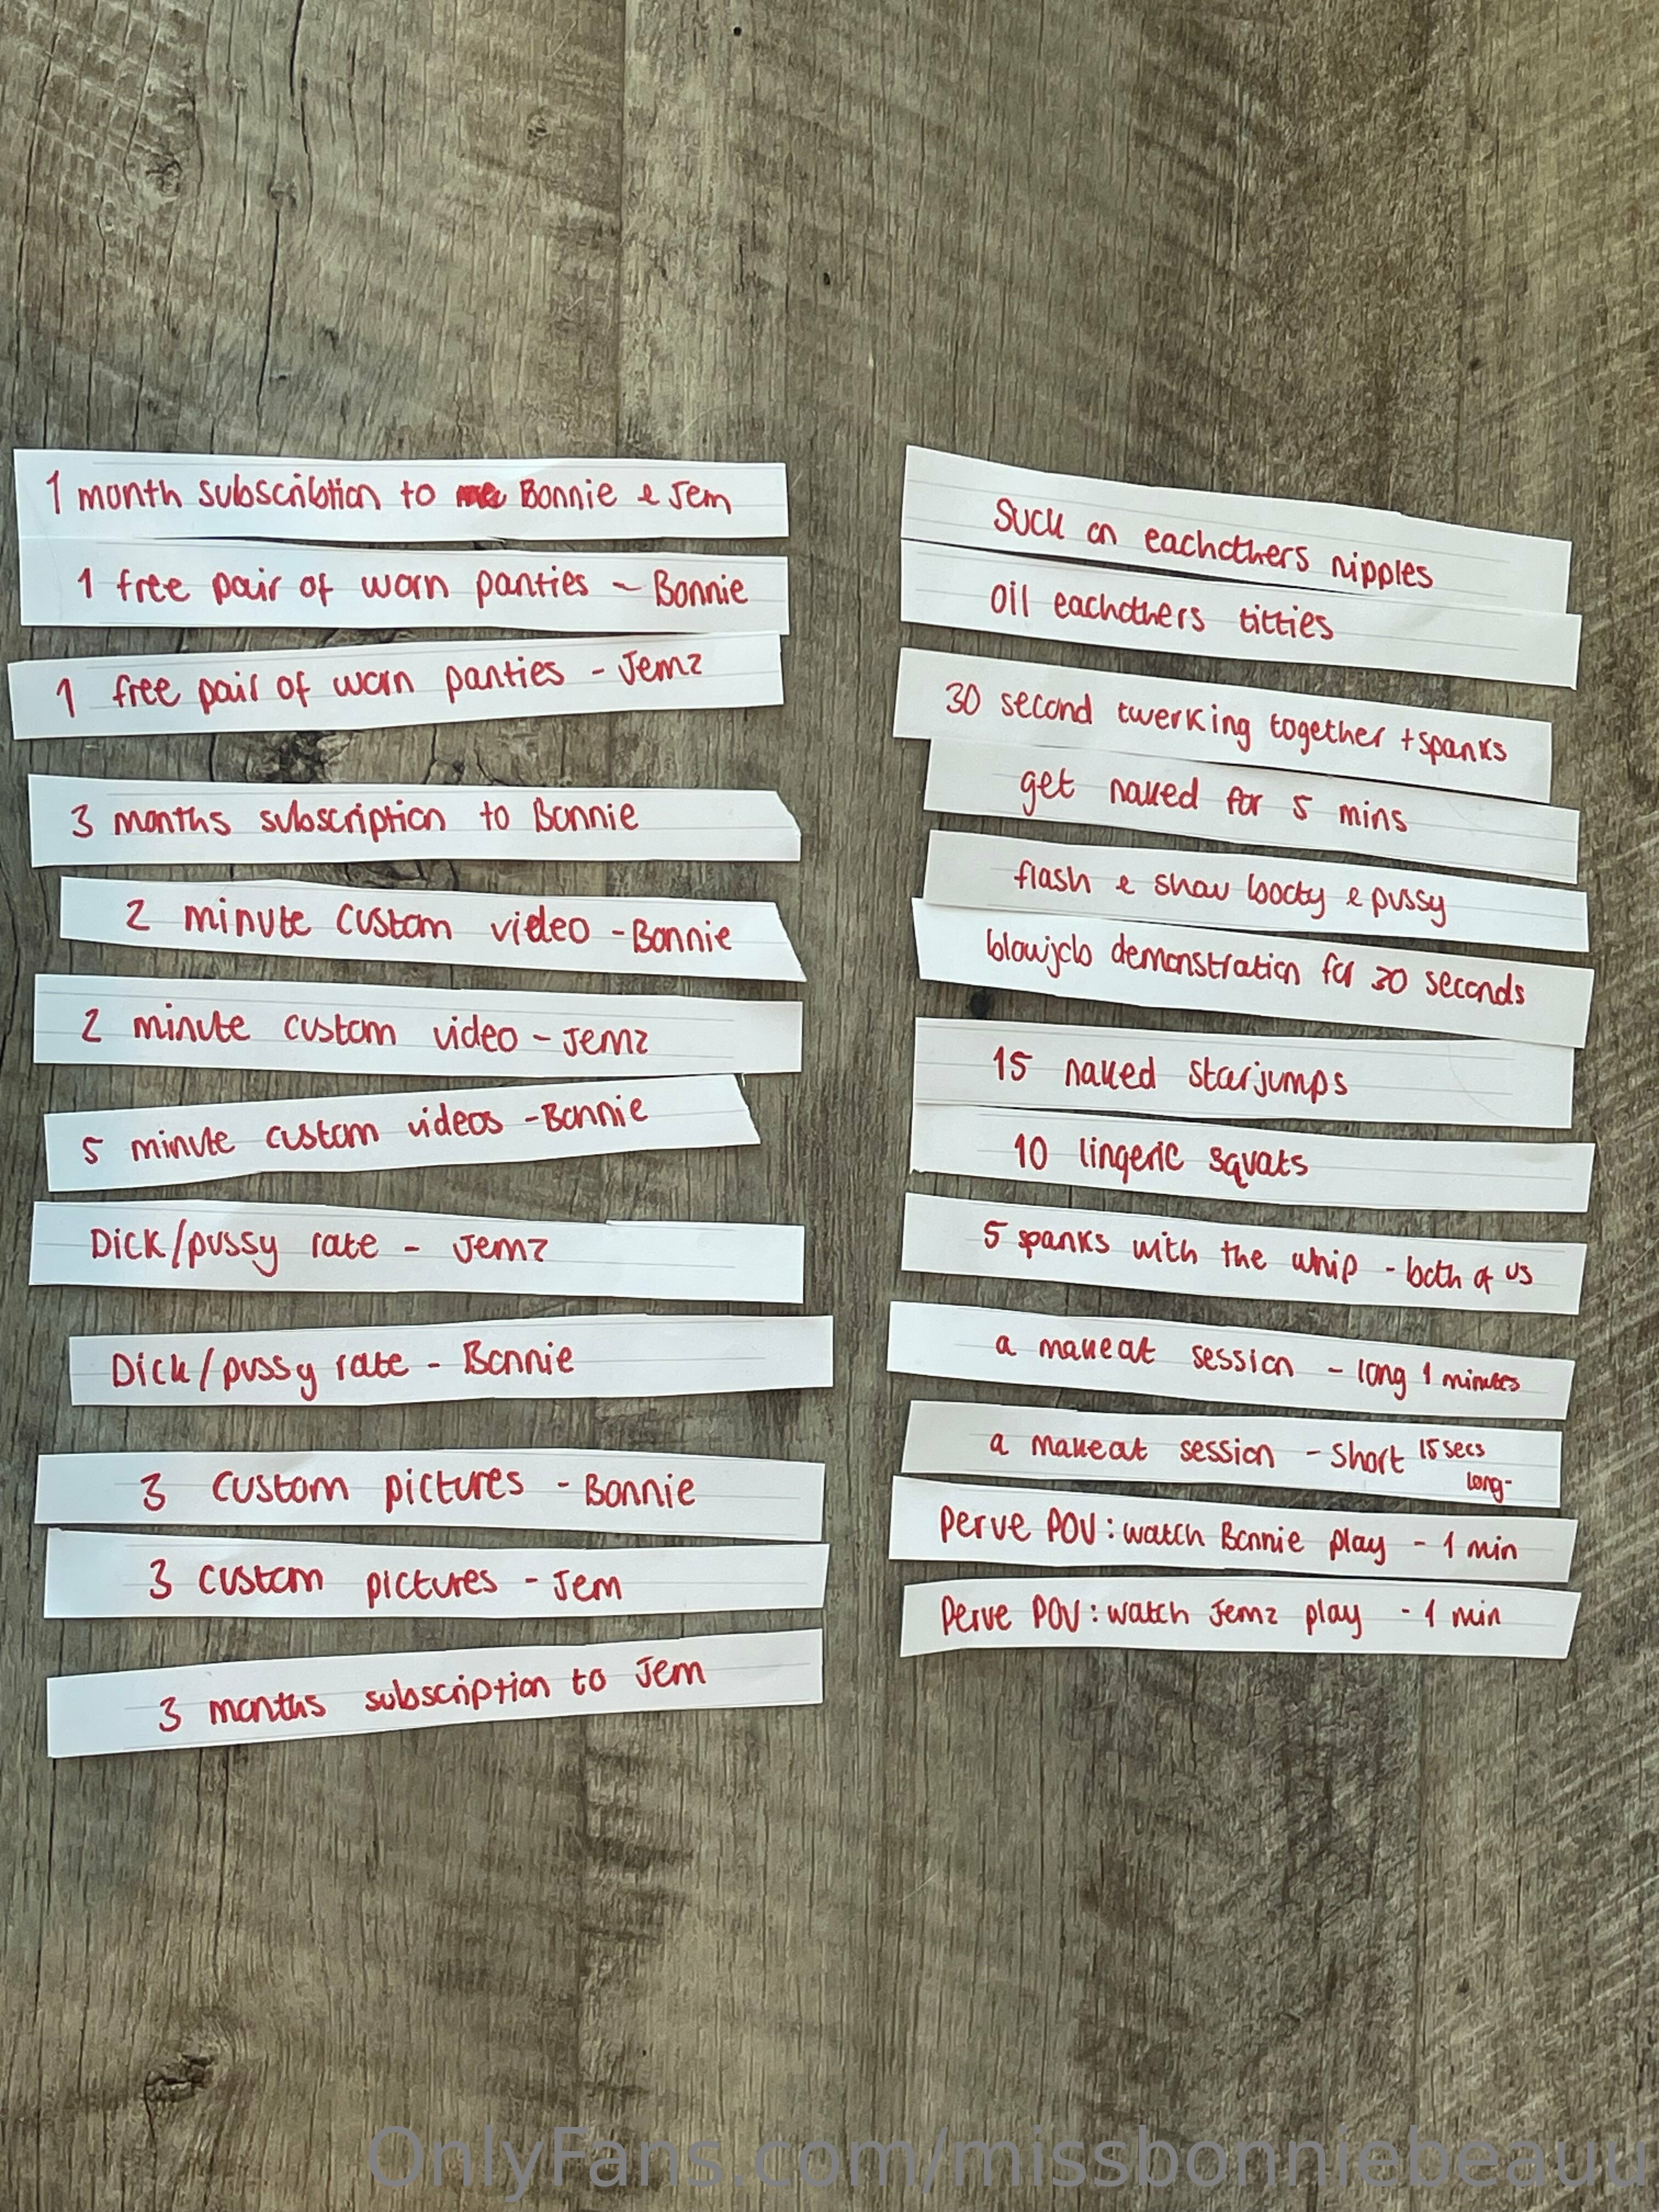 1 month subscribtion to me Bonnie & Jem
1 free pair of worn panties - Bonnie
1 free pair of worn panties - Jemz
3 months subscription to Bonnie
2 minute custom video - Bonnie
2 minute custom video - Jemz
5 minute custom videos - Bonnie
Dick/pussy rate - Jemz
Dick/pussy rate - Bonnie
3 custom pictures - Bonnie
3 custom pictures - Jem
3 months subscription to Jem
Suck on eachothers nipples
oil eachothers titties
30 second twerking together + spanks
get naked for 5 mins
flash & show booty & pussy
blowjob demonstration for 30 seconds
15 naked starjumps
10 lingerie squats
5 spanks with the whip - both of us
a makeout session - long 1 minutes
a makeout session - short 15 secs
long-
Perve POV: watch Bonnie play - 1 min
Perve POV: watch Jemz play - 1 min
OnlyFans.com/missbonniebeauu